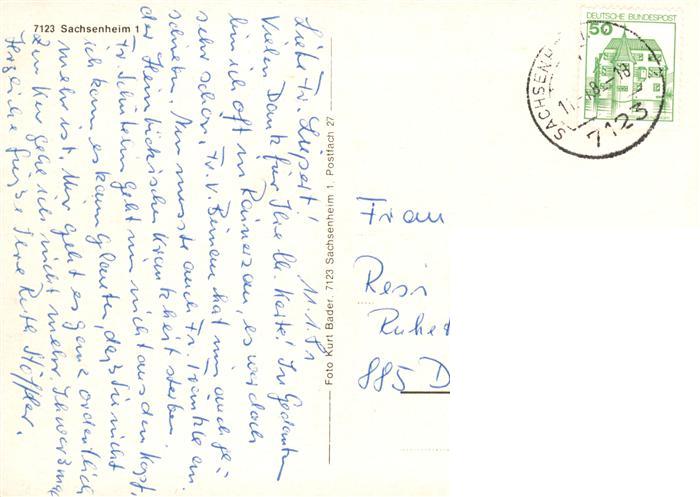 7123 Sachsenheim 1
11.1.81
Liebe Fr. Liepert!
Vielen Dank für Ihre lb. Karte! In Gedanken
bin ich oft in Rainerzau, es war doch
sehr schön. Fr. v. Beinen hat mir auch ge-
schrieben. Nun musste auch Fr. an
der Heimtückischen Krankheit sterben.
Fr. geht mir nicht aus dem Kopf,
ich kann es kaum glauben, dass Sie nicht
mehr ist. Mir geht es ganz ordentlich
Zur Kur gehe ich nicht mehr.
Herzliche Grüsse Ihre Ruth Stöffler.
Foto Kurt Bader, 7123 Sachsenheim 1, Postfach 27
50
DEUTSCHE BUNDESPOST
SACHSENH
11.-8.-18
7123
Frau
Resi
Ruhe
885 D